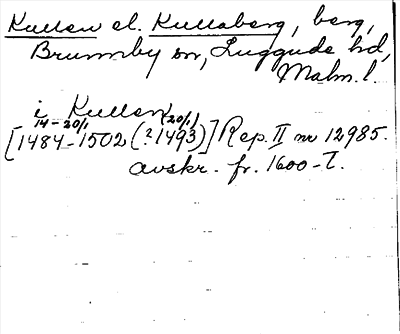 Kullen el. Kullaberg, berg,
Brunnby sn, Luggude hd,
Malm. l.
i Kullen
14-20/1 (20/1)
[1484-1502 (?1493)] Rep. II nr 12985.
avskr. fr. 1600-t.